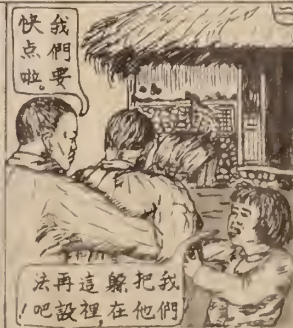 我們要
快点啦。
我們
把他
躲在
這裡，
再設
法吧！